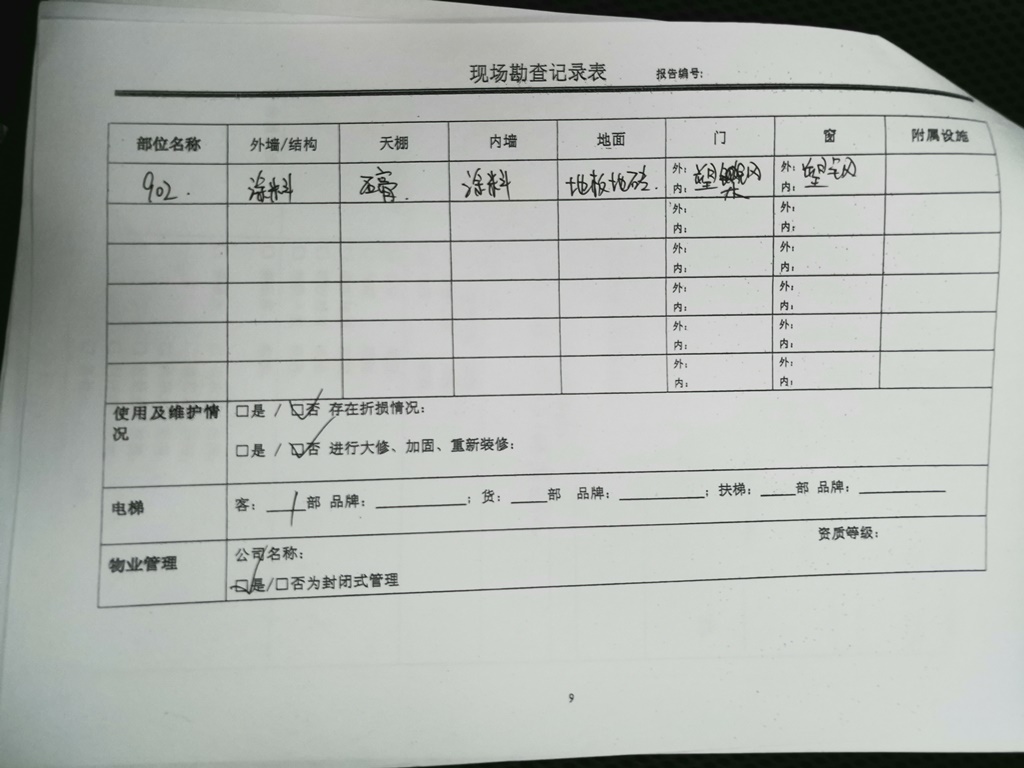 现场勘查记录表 报告编号:
部位名称 外墙/结构 天棚 内墙 地面 门 窗 附属设施
902. 涂料 石膏. 涂料 地板地砖. 外: 塑钢 内: 木 外: 塑钢 内:
外: 外:
内: 内:
外: 外:
内: 内:
外: 外:
内: 内:
外: 外:
内: 内:
外: 外:
内: 内:
使用及维护情况 □是 / ☑否 存在折损情况:
□是 / ☑否 进行大修、加固、重新装修:
电梯 客: 1部 品牌: ________; 货: ____部 品牌: ________; 扶梯: ____部 品牌: ________
物业管理 公司名称: 资质等级:
☑是/□否为封闭式管理
9